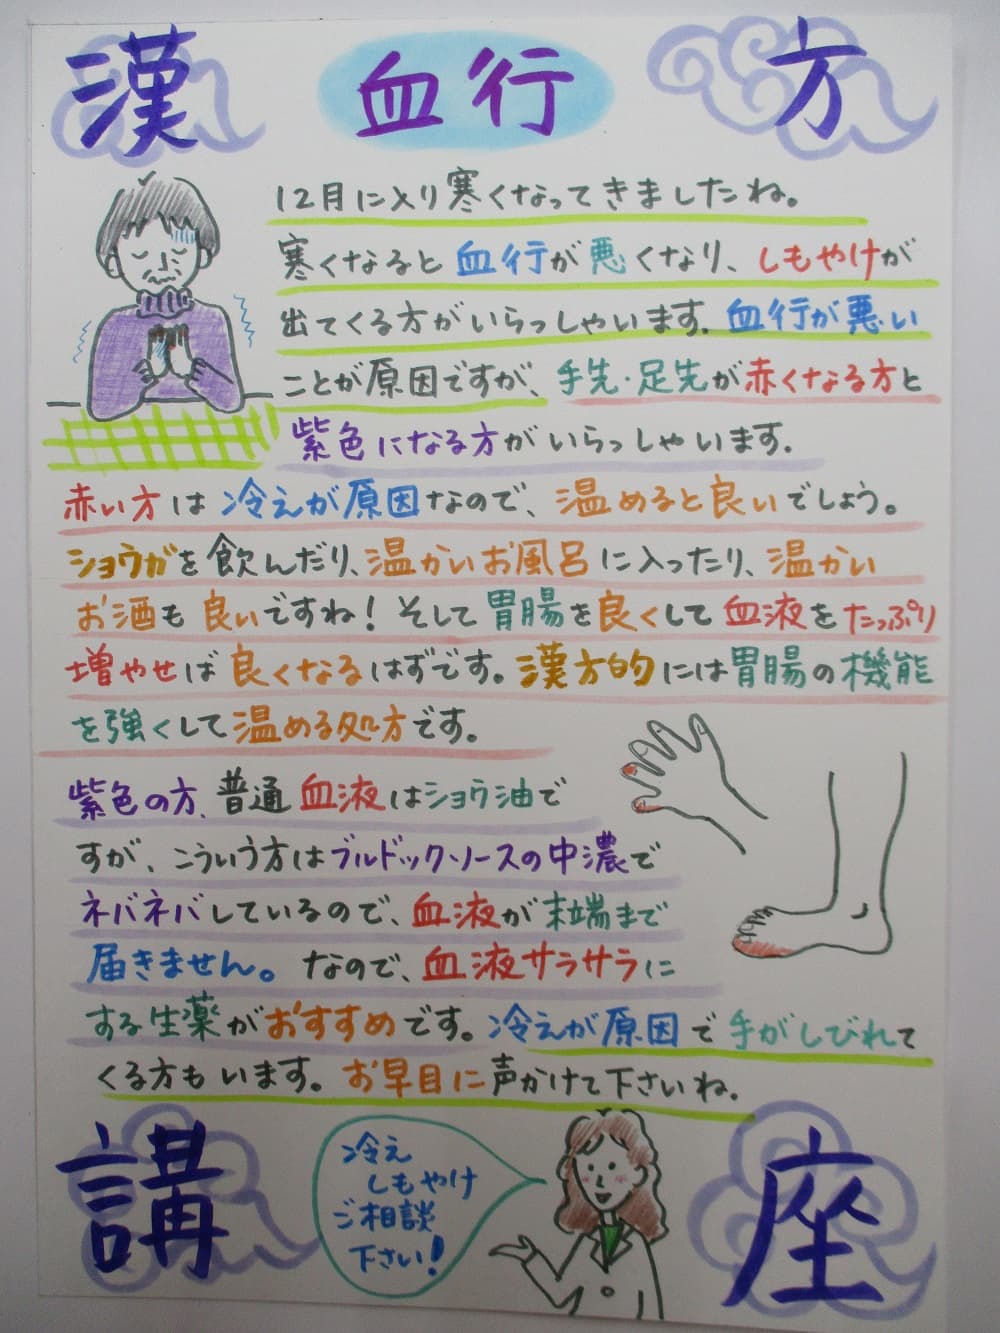 漢 血行 方
12月に入り寒くなってきましたね。
寒くなると血行が悪くなり、しもやけが
出てくる方がいらっしゃいます。血行が悪い
ことが原因ですが、手先・足先が赤くなる方と
紫色になる方がいらっしゃいます。
赤い方は冷えが原因なので、温めると良いでしょう。
ショウガを飲んだり、温かいお風呂に入ったり、温かい
お酒も良いですね！そして胃腸を良くして血液をたっぷり
増やせば良くなるはずです。漢方的には胃腸の機能
を強くして温める処方です。
紫色の方、普通血液はショウ油で
すが、こういう方はブルドックソースの中濃で
ネバネバしているので、血液が末端まで
届きません。なので、血液サラサラに
する生薬がおすすめです。冷えが原因で手がしびれて
くる方もいます。お早目に声かけて下さいね。
冷え
しもやけ
ご相談
下さい！
講 座